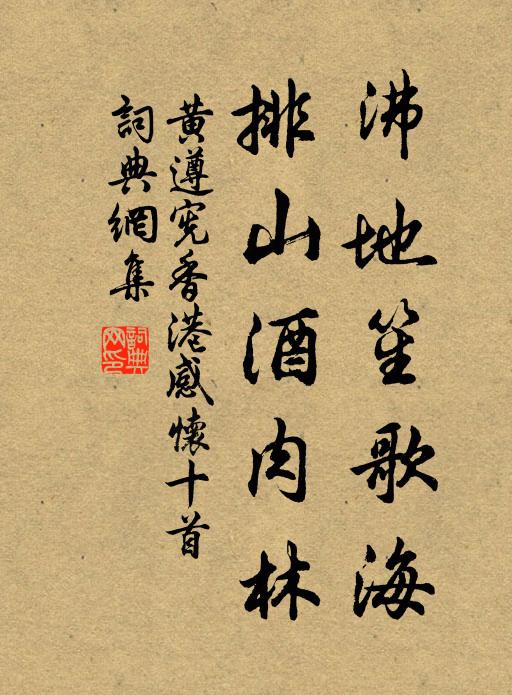 沸地笙歌海
排山酒肉林
黄遵宪香港感懷十首
詞典網集
詞典网印